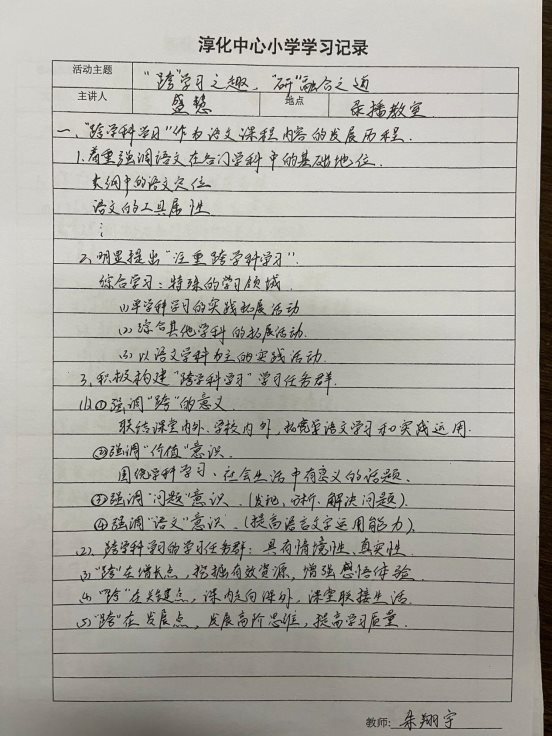 淳化中心小学学习记录
活动主题 “跨”学习之趣,“研”融合之道
主讲人 盛慧 地点 录播教室
一、“跨学科学习”作为语文课程内容的发展历程.
1.着重强调语文在各门学科中的基础地位.
大纲中的语文定位
语文的工具属性
⋮
2.明显提出“注重跨学科学习”.
综合学习:特殊的学习领域
(1)单学科学习的实践拓展活动
(2)综合其他学科的拓展活动.
(3)以语文学科为主的实践活动
3.积极构建“跨学科学习”学习任务群.
(1)①强调“跨”的意义
联结课堂内外、学校内外,拓宽语文学习和实践运用.
②强调“价值”意识.
围绕学科学习、社会生活中有意义的话题.
③强调“问题”意识.(发现、分析、解决问题).
④强调“语文”意识.(提高语言文字运用能力)
(2).跨学科学习的学习任务群:具有情境性、真实性.
(3)“跨”在增长点,挖掘有效资源,增强感悟体验
(4)“跨”在关键点,课内走向课外,课堂联接生活.
(5)“跨”在发展点,发展高阶思维,提高学习质量.
教师:朱翔宇